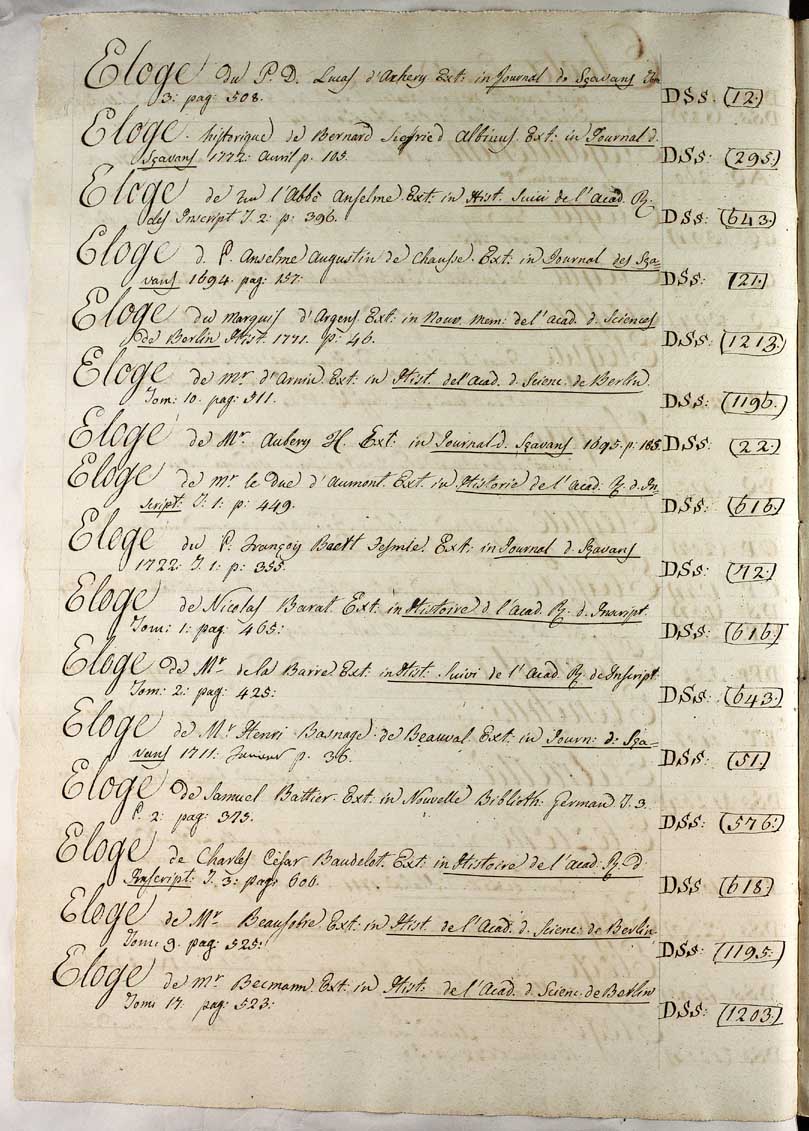 Eloge du P. D. Lucas d'Achery Ext: in Journal de Sçavans
3: pag: 508. DSs: (12.)
Eloge historique de Bernard Siegfried Albinus Ext: in Journal d.
Sçavans 1772: Avril p. 105. DSs: (295.)
Eloge de l'Abbé Anselme. Ext: in Hist. Suivi de l'Acad. R.
des Inscript T. 2: p: 396. DSs: (643.)
Eloge d. P. Anselme Augustin de Chausse. Ext: in Journal des Sça-
vans 1694. pag: 157: DSs: (21.)
Eloge du Marquis d'Argens. Ext: in Nouv. Mem: de l'acad. d. Sciences
de Berlin Hist. 1771. p: 46. DSs: (1213.)
Eloge de mr: d'Arnim. Ext: in Hist. del'Acad. d. Scienc. de Berlin.
Tom: 10. pag: 511. DSs: (1196.)
Eloge de Mr. Aubery H. Ext: in Journal d. Sçavans 1695. p: 185. DSs: (22.)
Eloge de mr le Duc d'Aumont. Ext: in Historie de l'Acad. R. d. In-
script: T. 1: p: 449. DSs: (616.)
Eloge du P. François Baert Ext: in Journal d. Sçavans
1722: T. 1: p: 355. DSs: (72.)
Eloge de Nicolas Barat Ext: in Histoire d l'Acad. R. d. Inscript.
Tom: 1: pag: 465: DSs: (616.)
Eloge de Mr. de la Barre Ext: in Hist: Suivi de l'Acad R. de Inscript.
Tom: 2: pag: 425: DSs: (643.)
Eloge de Mr Henri Basnage de Beauval Ext: in Journ: d: Sça-
vans 1711: Janvier p. 36. DSs: (51.)
Eloge de Samuel Battier. Ext: in Nouvelle Biblioth: German T. 3.
P. 2: pag: 373. DSs: (576.)
Eloge de Charles César Baudelot. Ext: in Histoire de l'acad: R. d.
Inscript: T. 3: pag: 606. DSs (618.)
Eloge de Mr. Beausobre. Ext: in Hist. de l'Acad. d. Scienc: de Berlin.
Tom: 9. pag: 525: DSs: (1195.)
Eloge de mr Becmann. Ext: in Hist: de l'Acad. d. Scienc. de Berlin
Tom: 17. pag: 523: DSs: (1203.)